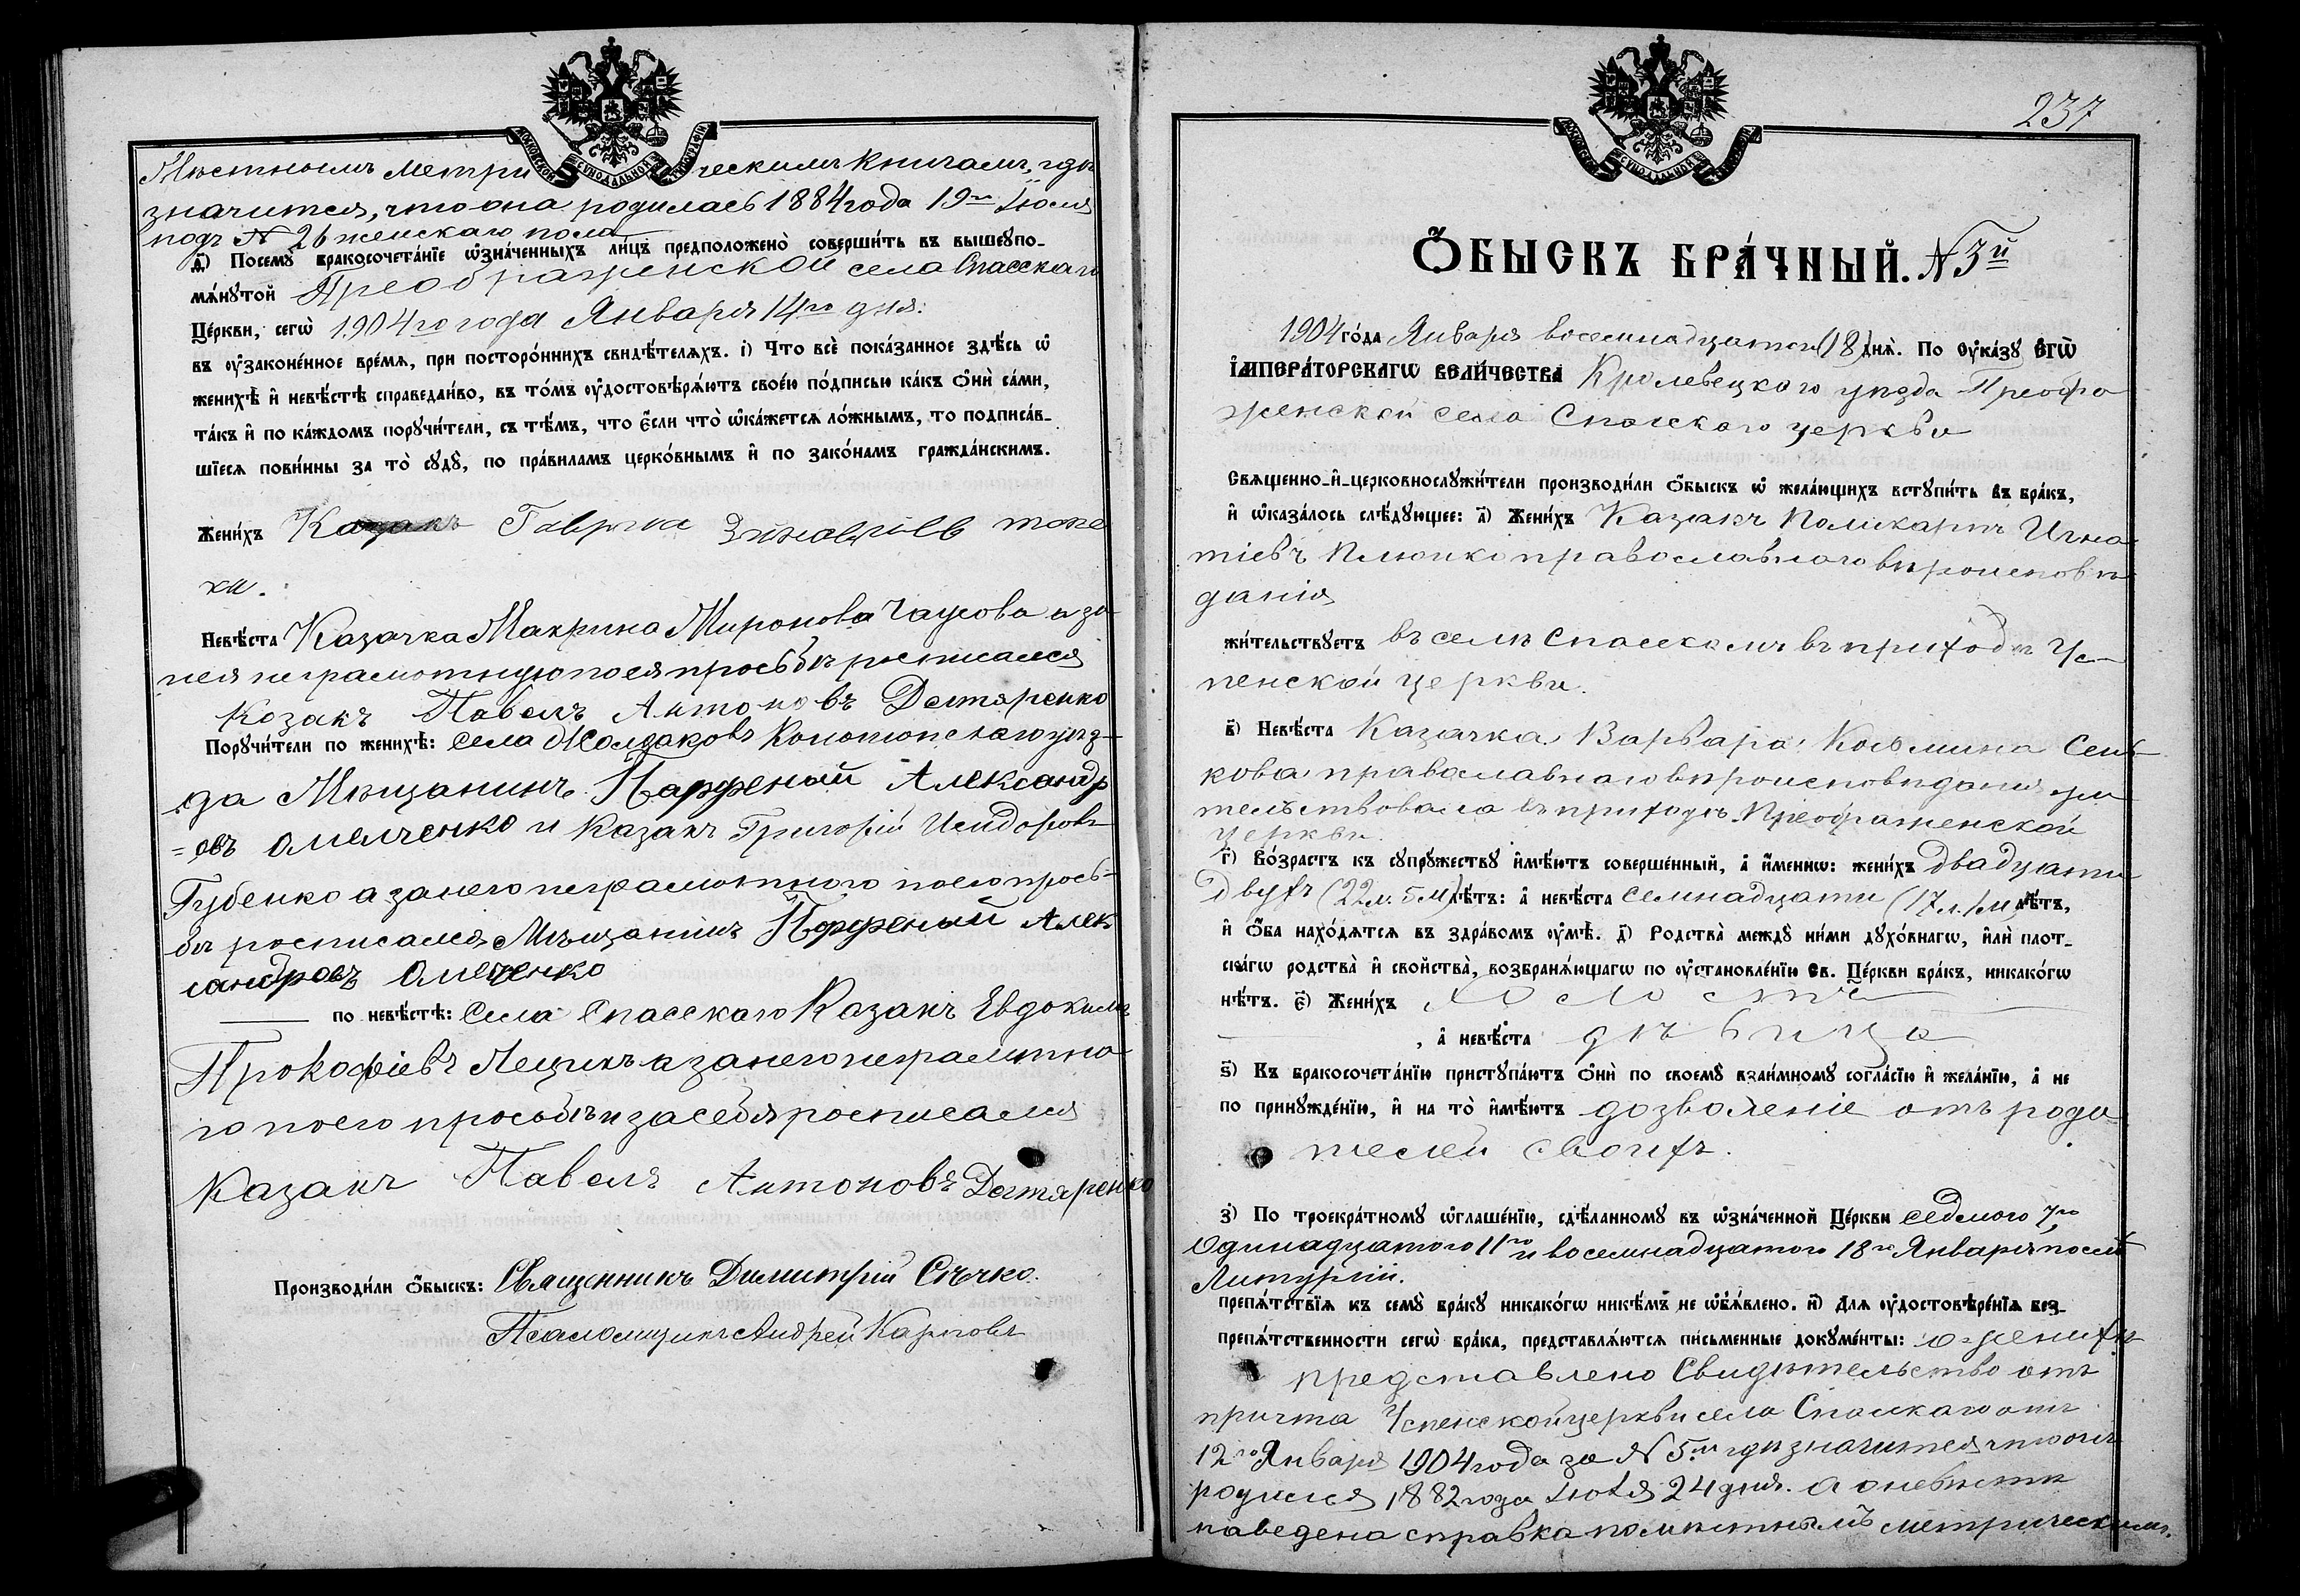 Мѣстнымъ метри ческимъ книгамъ, гдѣ
МОСКОВСКОЙ СѴНОДАЛЬНОЙ ТИПОГРАФІИ
значится, что она родилась 1884 года 19го Іюля
подъ № 26 женскаго пола
д҃) Посемꙋ̀ бракосочета́нїе ѡ҆зна́ченныхъ ли́цъ предположено̀ соверши́ть въ вышеꙋпо-
мѧ́нꙋтой Преображенской села Спасскаго
Це́ркви, сегѡ̀ 1904го года Января 14го дня.
въ оу҆законе́нное вре́мѧ, при посторо́ннихъ свидѣ́телѧхъ. і҃) Что всѐ пока́занное здѣ́сь ѡ҆
женихѣ̀ и҆ невѣ́стѣ справедли́во, въ то́мъ оу҆достовѣрѧ́ютъ свое́ю по́дписью ка́къ ѻ҆нѝ са́ми,
та́къ и҆ по ка́ждомъ порꙋчи́тели, съ тѣ́мъ, что є҆́сли что̀ ѡ҆ка́жетсѧ ло́жнымъ, то подписа́в-
шїесѧ пови́нны за то̀ сꙋдꙋ̀, по пра́виламъ церко́внымъ и҆ по зако́намъ гражда́нскимъ.
Жени́хъ Козакъ Гавріила Зиновіевъ
ки.
Невѣ́ста Казачка Макрина Миронова Чаусова а за
нея неграмотную по ея просьбѣ росписался
Козакъ Павелъ Антоновъ Дегтяренко
Порꙋчи́тели по женихѣ̀: Села Жолдаковъ Конотопскаго уѣз-
да Мѣщанинъ Парфеный Александр
=овъ Омельченко и Казакъ Григорій Исидоровъ
Губенко а за него неграмотного по его прось-
бѣ росписался Мѣщанинъ Парфеный Алек
сандровъ Омельченко
по невѣ́стѣ: Села Спасскаго Казакъ Евдокимъ
Прокофіевъ Лещикъ а за него неграмотно
го по его просьбѣ и за себя росписался
Казакъ Павелъ Антоновъ Дегтяренко
Производи́ли ѻ҆́быскъ: Священникъ Димитрій Сѣчко.
Псаломщикъ Андрей Карповъ
237
МОСКОВСКОЙ СѴНОДАЛЬНОЙ ТИПОГРАФІИ
Ѻ҆́БЫСКЪ БРА́ЧНЫЙ. № 3й
1904 го́да Января восемнадцатого (18) днѧ̀. По Оу҆ка́зꙋ ЕГѠ̀
І҆МПЕРА́ТОРСКАГѠ ВЕЛИ́ЧЕСТВА Кролевецкого уѣзда Преобра
женской села Спасского церкви
Свѧщенно-и҆-церковнослꙋжи́тели производи́ли ѻ҆́быскъ ѡ҆ жела́ющихъ встꙋпи́ть въ бра́къ,
и҆ ѡ҆каза́лось слѣ́дꙋющее: а҃) Жени́хъ Казакъ Поликарпъ Игна
тіевъ православного вѣроисповѣ
данія
жи́тельствꙋетъ въ селѣ Спасскомъ въ приходѣ Ус-
пенской церкви.
в҃) Невѣ́ста Казачка Варвара Косьмина Сень
кова православнаго вѣроисповѣданія жи
тельствовала въ приходѣ Преображенской
церкви.
г҃) Во́зрастъ къ сꙋпрꙋ́жествꙋ и҆мѣ́ютъ соверше́нный, а҆ и҆́меннѡ: жени́хъ двадцати
двухъ (22 л. 5 м) лѣ́тъ: а҆ невѣ́ста семнадцати (17 л. 1 м) лѣ́тъ,
и҆ ѻ҆́ба нахо́дѧтсѧ въ здра́вомъ оу҆мѣ̀. д҃) Родства̀ междꙋ̀ ни́ми дꙋхо́внагѡ, и҆лѝ плот-
ска́гѡ родства̀ и҆ свойства̀, возбранѧ́ющагѡ по оу҆становле́нїю Св. Це́ркви бра́къ, никако́гѡ
нѣ́тъ. є҃) Жени́хъ холостъ
, а҆ невѣ́ста дѣвица
ѕ҃) Къ бракосочета́нїю пристꙋпа́ютъ ѻ҆нѝ по своемꙋ̀ взаи́мномꙋ согла́сїю и҆ жела́нїю, а҆ не
по принꙋжде́нїю, и҆ на то̀ и҆мѣ́ютъ дозволеніе отъ роди
телей своихъ.
з҃) По троекра́тномꙋ ѡ҆глаше́нїю, сдѣ́ланномꙋ въ ѡ҆зна́ченной Це́ркви седмого 7го
Одинадцатого 11го и восемнадцатого 18го Января послѣ
Литургіи.
препѧ́тствїѧ къ семꙋ̀ бра́кꙋ никако́гѡ никѣ́мъ не ѡ҆б̾ѧ́влено. и҃) Для оу҆достовѣре́нїѧ без-
препѧ́тственности сегѡ̀ бра́ка, представлѧ́ютсѧ пи́сьменные докꙋме́нты: о женихѣ
представлено Свидѣтельство отъ
причта Успенской церкви села Спасскаго отъ
12го Января 1904 года за № 5м гдѣ значится что онъ
родился 1882 года Іюля 24 дня. а о невѣстѣ
наведена справка по мѣстнымъ метрическимъ.